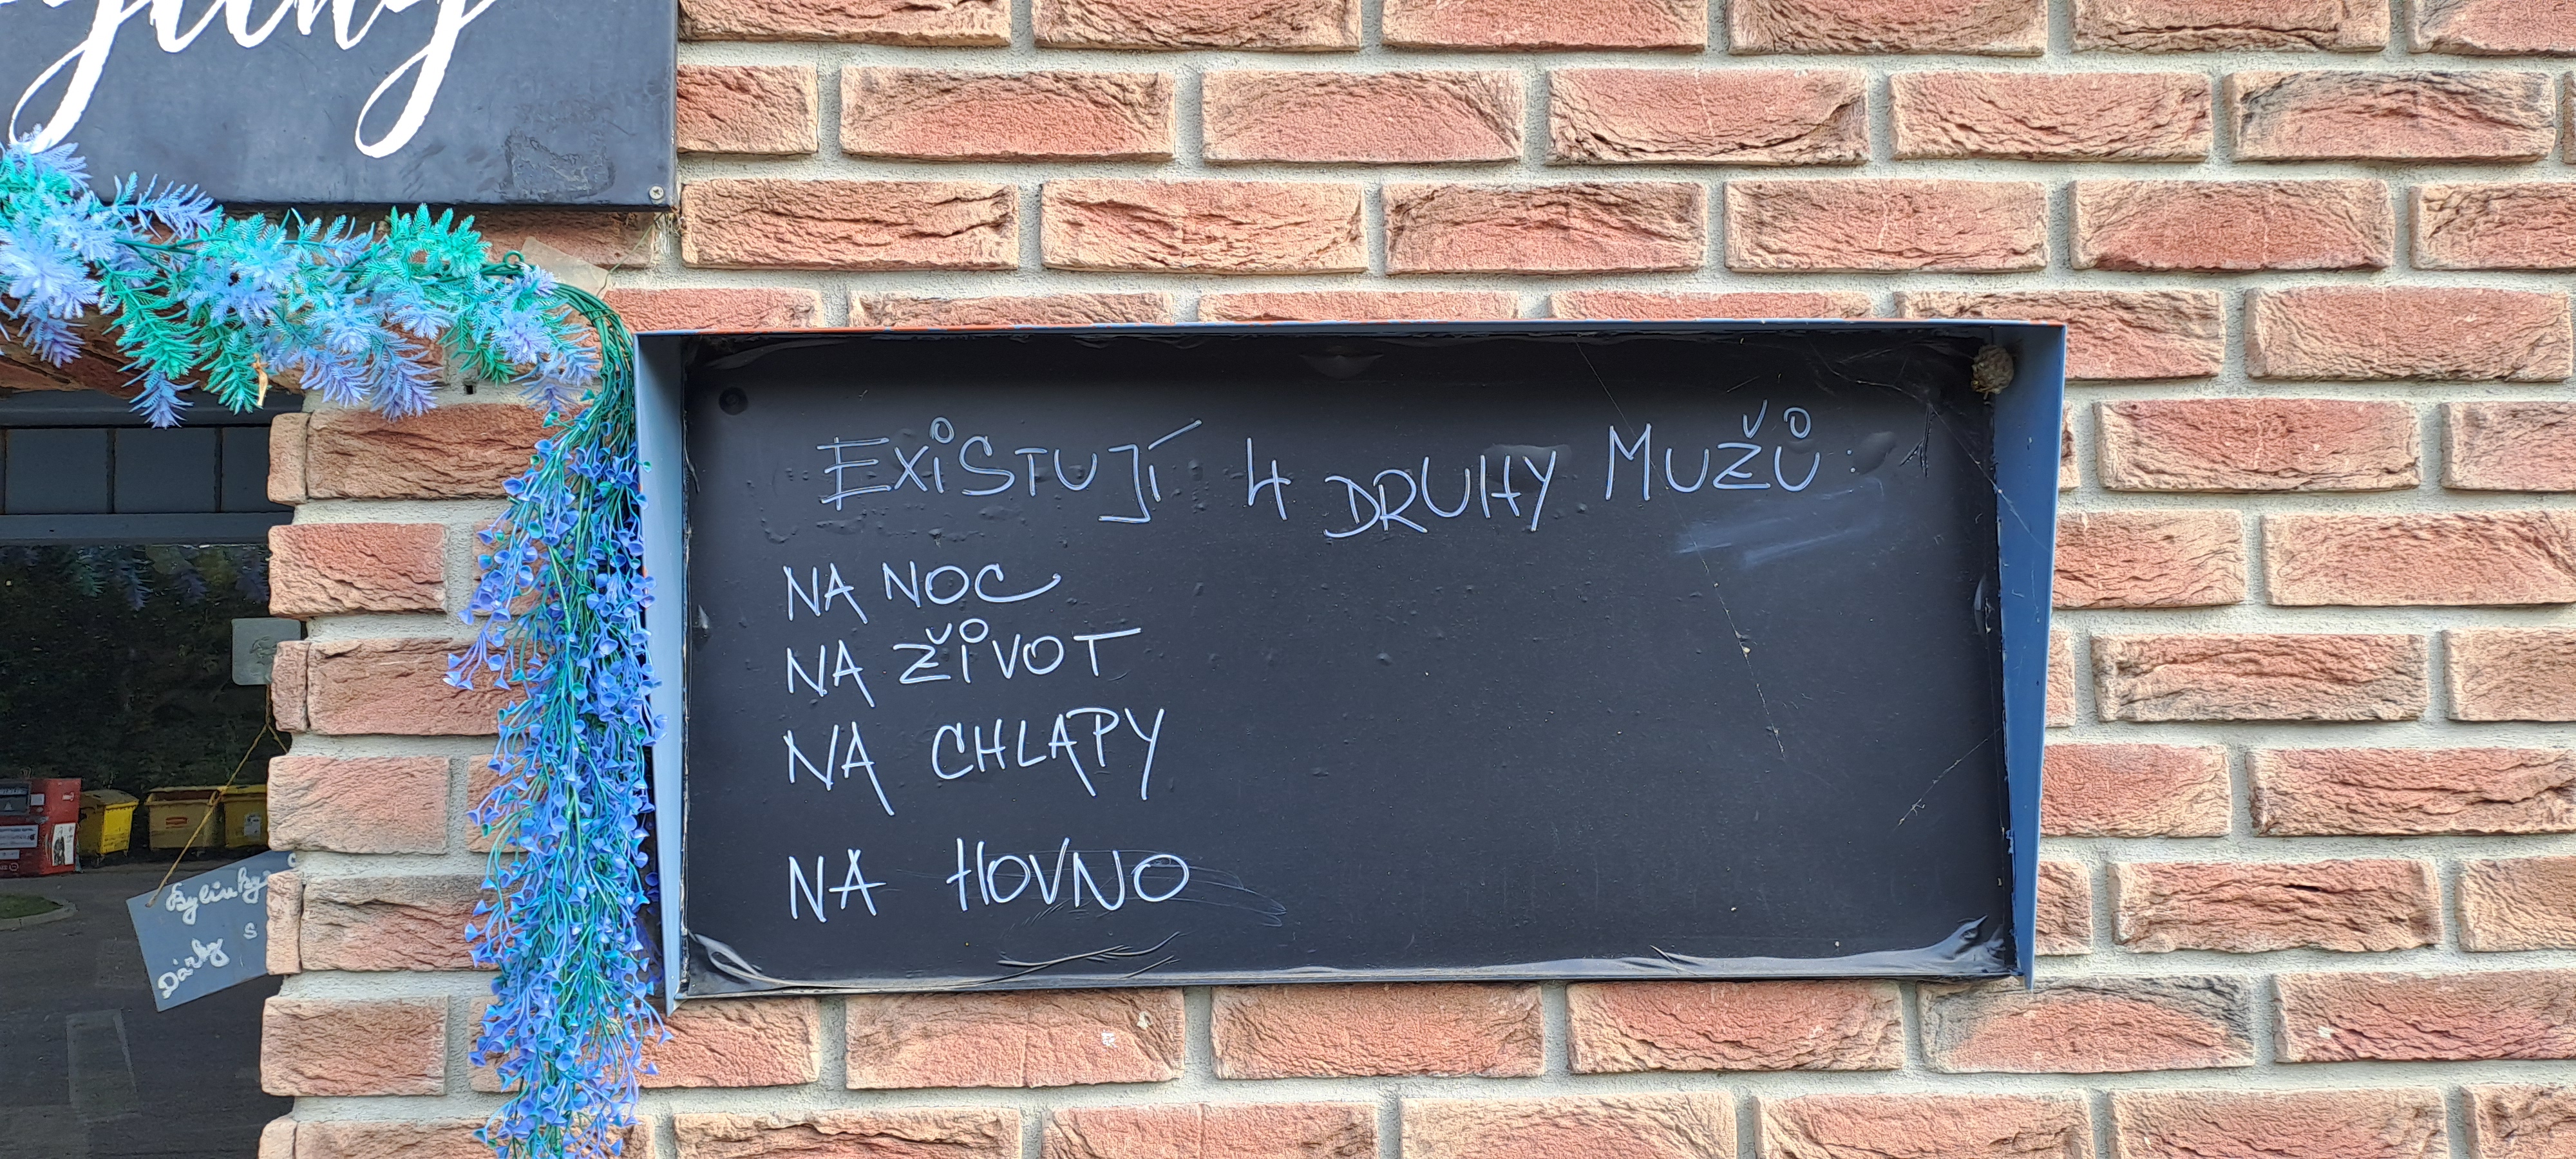 EXiSTUJÍ 4 DRUHY MUŽŮ:
NA NOC
NA ŽiVOT
NA CHLAPY
NA HOVNO
Bylinky
Dárky s